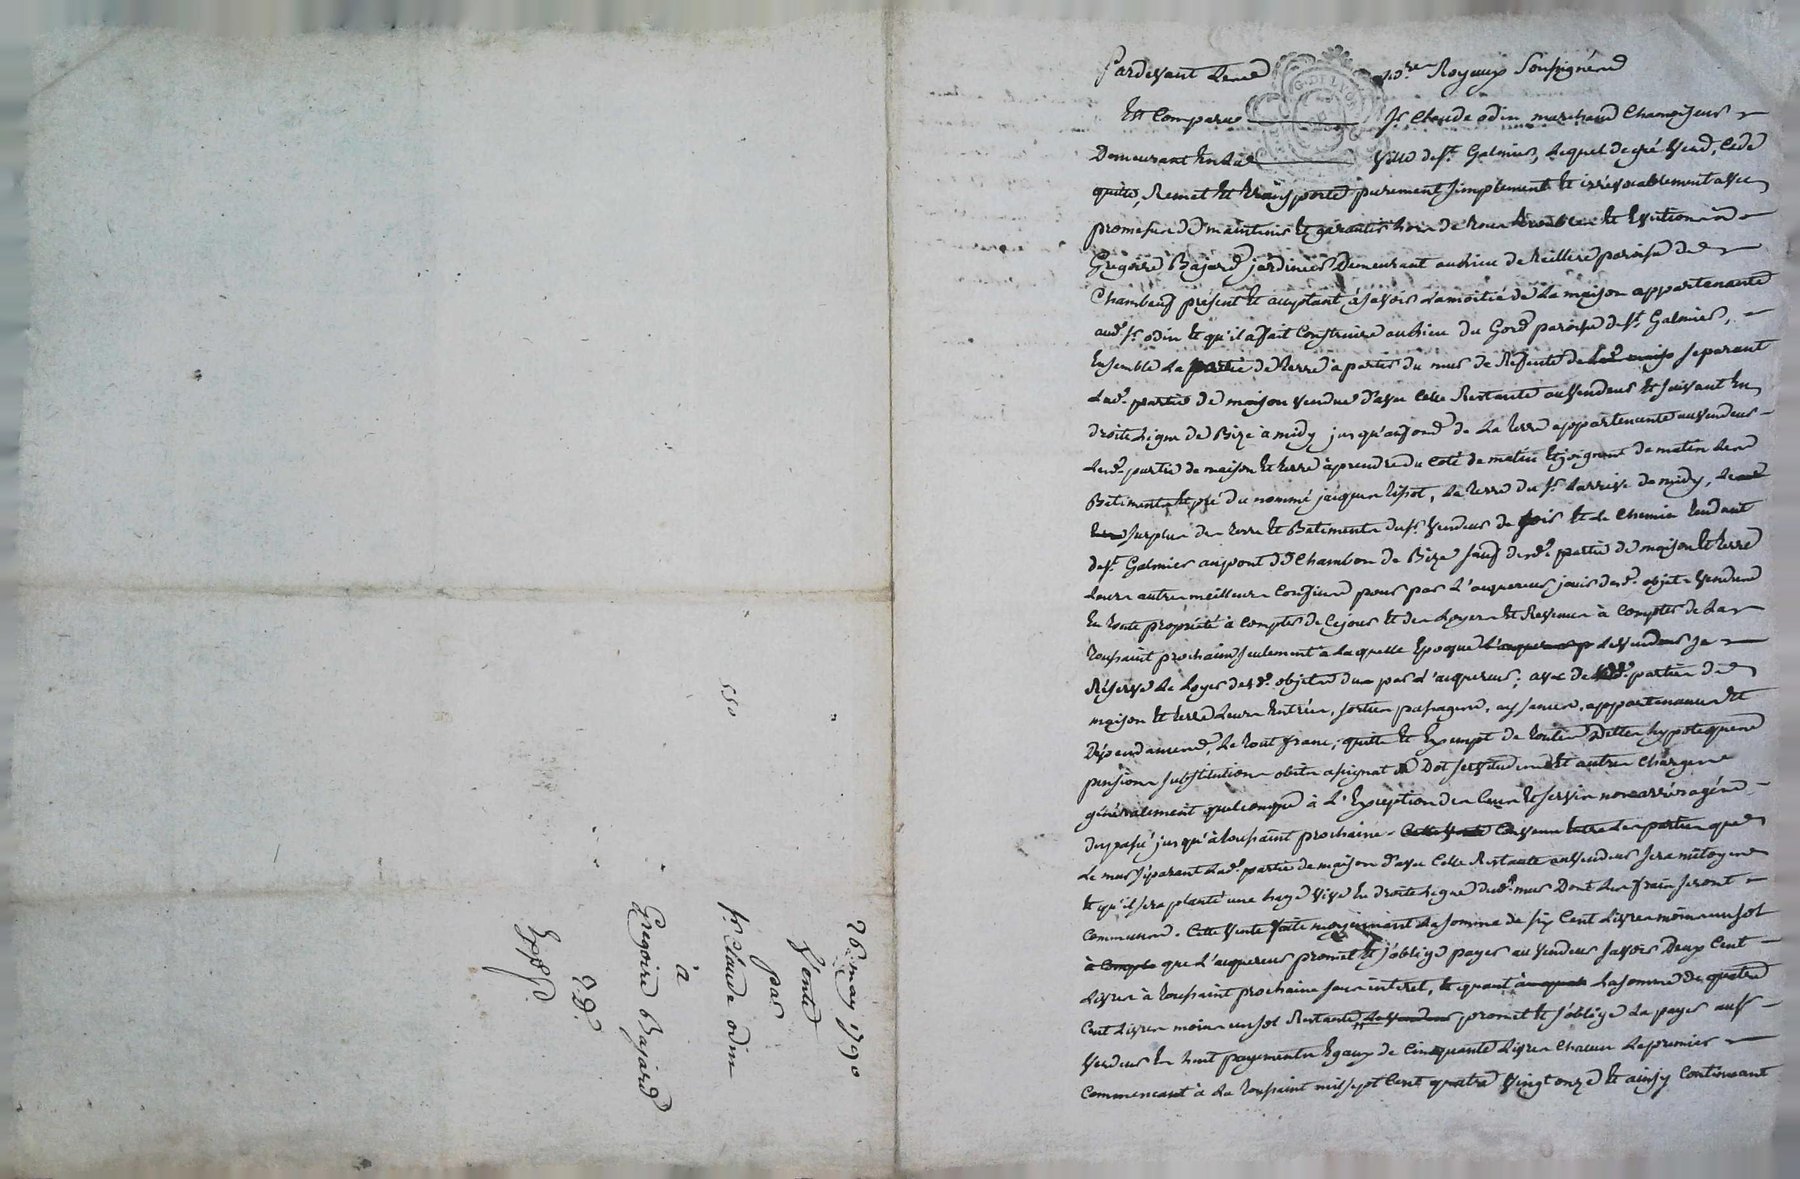 26 may 1790
Vente
par
Sr. Claude odin
à
Gregoire Bajard
Expd.
550
Pardevant Les No.res Royaux Soussignés
Est Comparu Sr. Claude odin marchand Chamoiseur
Demeurant En La Ville de St. Galmier, Lequel de gré Vend, Cede
quitte, Remet Et transporte purement simplement Et irrévocablement avec
promesse de maintenir Et garantir hors de tous troubles Et Eviction à
Gregoire Bajard jardinier Demeurant au Lieu de paroisse de
Chambeuf présent Et acceptant, à savoir La moitié de La maison appartenante
aud. Sr. odin Et qu'il a fait Construire au Lieu du Gord paroisse de St. Galmier,
Ensemble La partie de terre a partir du mur de Refente separant
Lad. partie de maison vendue d'avec Celle Restante au Vendeur Et suivant En
droite Ligne de Bize à midy jusqu'au fond de La terre appartenante au Vendeur
Lesd. partie de maison Et terre à prendre du Coté de matin Et joignant de matin Les
Batiments Et pré du nommé jacques, La terre du Sr. Larrive de midy, Le
surplus des terre Et Batiments dud. Sr. Vendeur de soir Et Le Chemin tendant
de St. Galmier au pont de Chambon de Bize sauf desd. partie de maison Et terre
Leurs autres meilleurs Confins pour par L'acquereur jouir desd. objets Vendus
En toute propriété à Compter de Ce jour Et des Loyers Et Revenus à Compter de La
toussaint prochaine seulement à La quelle Epoque Le Vendeur se
Réserve Le Loyer desd. objets dus par L'acquereur; avec desd. parties de
maison Et terre Leurs Entrées, sorties passages, aysances, appartenances Et
Dépendances, Le tout franc, quitte Et Exempt de toutes Dettes hypoteques
pensions substitutions obits assignat de Dot servitudes Et autres Charges
généralement quelconques à L'Exception des Cens Et servis non arréragés
du passé jusqu'à toussaint prochaine. Convenu Entre Les parties que
Le mur séparant Lad. partie de maison d'avec Celle Restante au Vendeur sera mitoyen
Et qu'il sera planté une haye Vive En droite Ligne dud. mur Dont Les frais seront
Communs. Cette Vente faite moyennant La somme de six Cent Livres moins un sol
que L'acquereur promet Et s'oblige payer au Vendeur savoir Deux Cent
Livres à toussaint prochaine sans interet, Et quant à La somme de quatre
Cent Livres moins un sol Restante promet Et s'oblige La payer aud.
Vendeur En huit payements Egaux de Cinquante Livres Chacun Le premier
Commencant à La toussaint mil sept Cent quatre Vingt onze Et ainsy Continuant